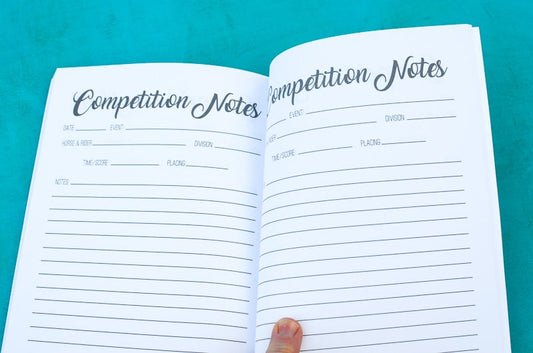 Competition Notes
DATE EVENT
HORSE & RIDER DIVISION
TIME/SCORE: PLACING
NOTES:
Competition Notes
EVENT
DIVISION
TIME/SCORE: PLACING